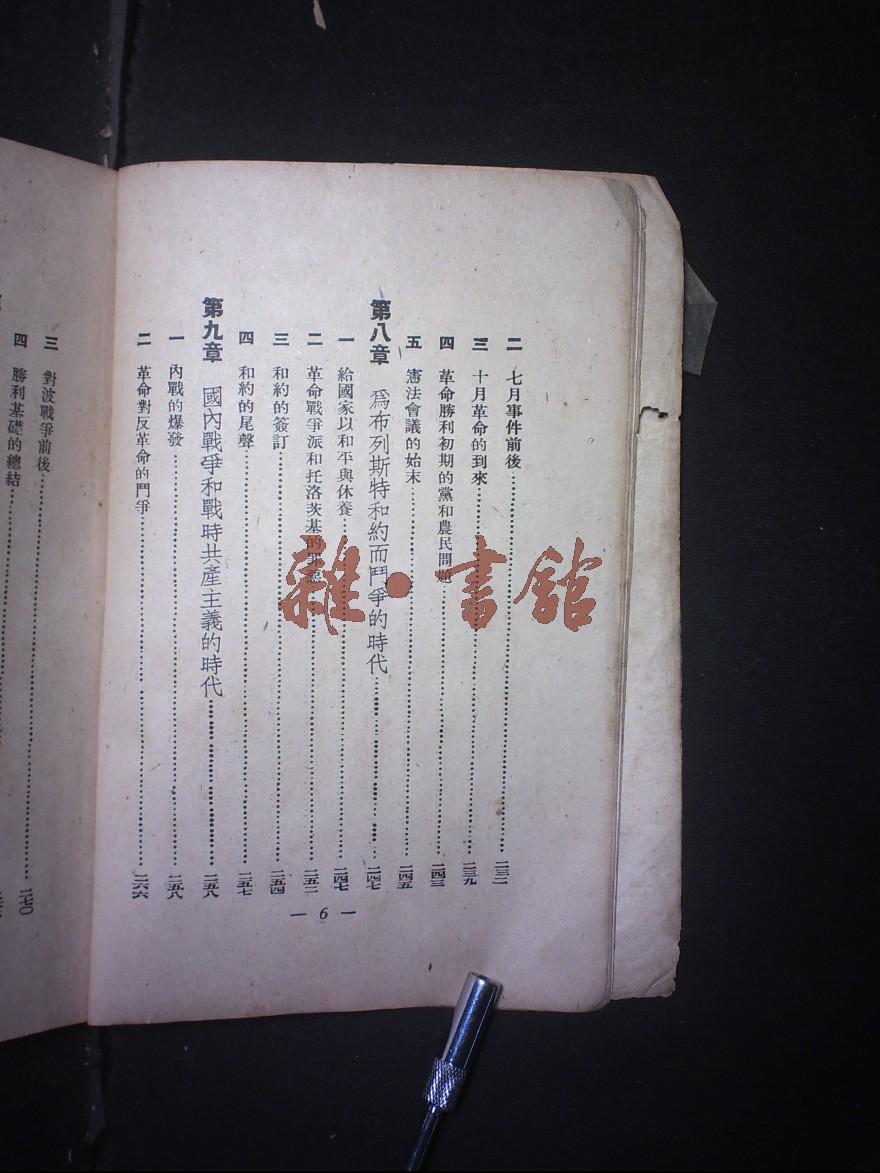 二 七月事件前後 二三二
三 十月革命的到來 二三九
四 革命勝利初期的黨和農民問題 二四三
五 憲法會議的始末 二四五
第八章 爲布列斯特和約而鬥爭的時代 二四七
一 給國家以和平與休養 二四七
二 革命戰爭派和托洛茨基的 二五二
三 和約的簽訂 二五四
四 和約的尾聲 二五七
第九章 國內戰爭和戰時共產主義的時代 二五八
一 內戰的爆發 二五八
二 革命對反革命的鬥爭 二六六
— 6 —
三 對波戰爭前後 二七〇
四 勝利基礎的總結
雜·書館